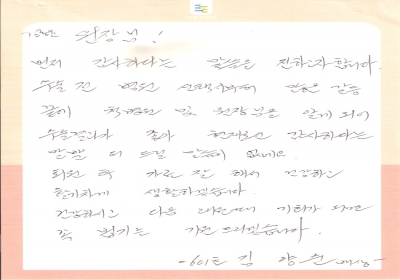 원장님!
먼저 감사하다는 말씀을 전하고자 합니다.
수술 전 병원 선택하며 많은 갈등
끝에 척병원 및 원장님을 알게 되어
수술결과가 좋아 현재로선 감사하다는
말밖에 더 드릴 말씀이 없네요.
퇴원 후 치료 잘 해서 건강하고
활기차게 생활하겠습니다.
건강하시고 다음 내원때 기회가 되면
꼭 뵙기를 기원드리겠습니다.
-601호 김